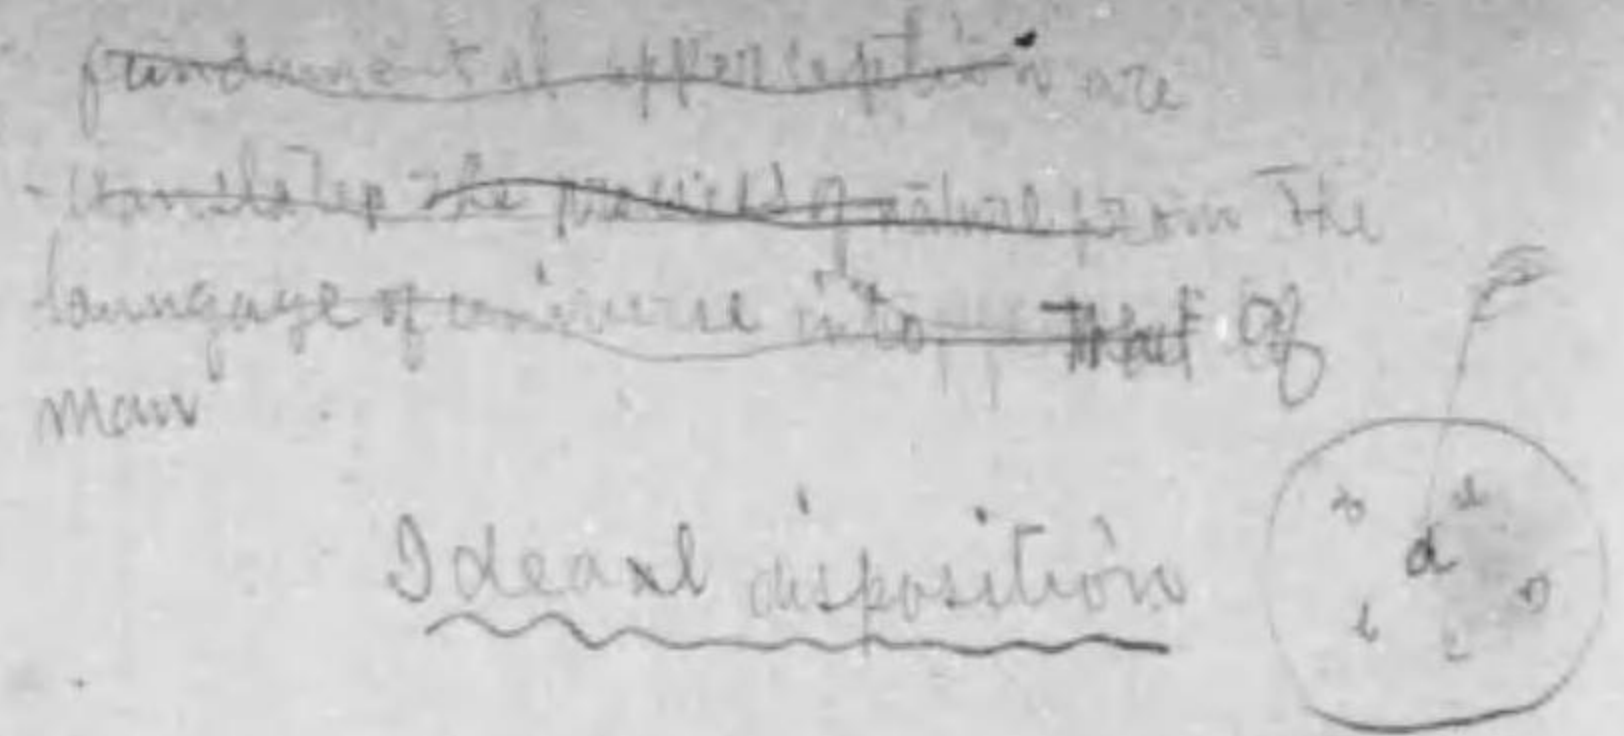 fundamental apperception are
the of nature from the
language of universe into that of
man
Ideal disposition
d